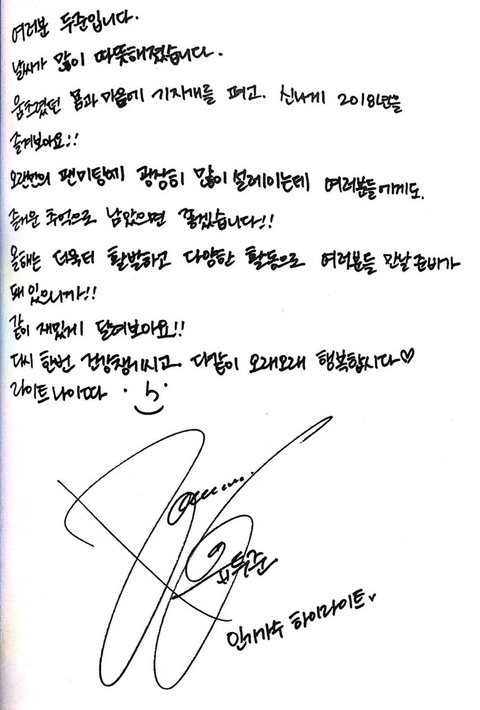 여러분 두준입니다.
날씨가 많이 따뜻해졌습니다.
움츠렸던 몸과 마음에 기지개를 펴고. 신나게 2018년을
즐겨보아요!!
오랜만의 팬미팅에 굉장히 많이 설레이는데 여러분들에게도.
즐거운 추억으로 남았으면 좋겠습니다!!
올해는 더욱더 활발하고 다양한 활동으로 여러분들 만날 준비가
돼 있으니까!!
같이 재밌게 달려보아요!!
다시 한번 건강챙기시고 다같이 오래오래 행복합시다♡
라이트 나이따
윤두준
인기가수 하이라이트♥